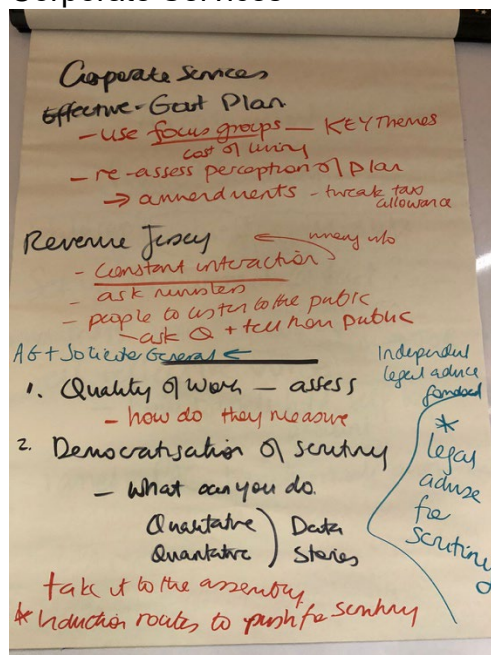 Corporate Services
Corporate Services
Effective - Govt Plan
- use focus groups - KEY Themes
cost of living
- re-assess perception of plan
→ ammendments - tweak tax
allowance
Revenue Jersey
info
- Constant interaction
- ask ministers
- people to listen to the public
- ask Q + tell them public
AG + Solicitor General ←
Independent
legal advice
1. Quality of work - assess
- how do they measure
2. Democratisation of scrutiny
- What can you do.
Qualitative ) Data
Quantative ) Stories
* legal
advise
for
Scrutiny
take it to the assembly
* Induction routes to push for scrutiny